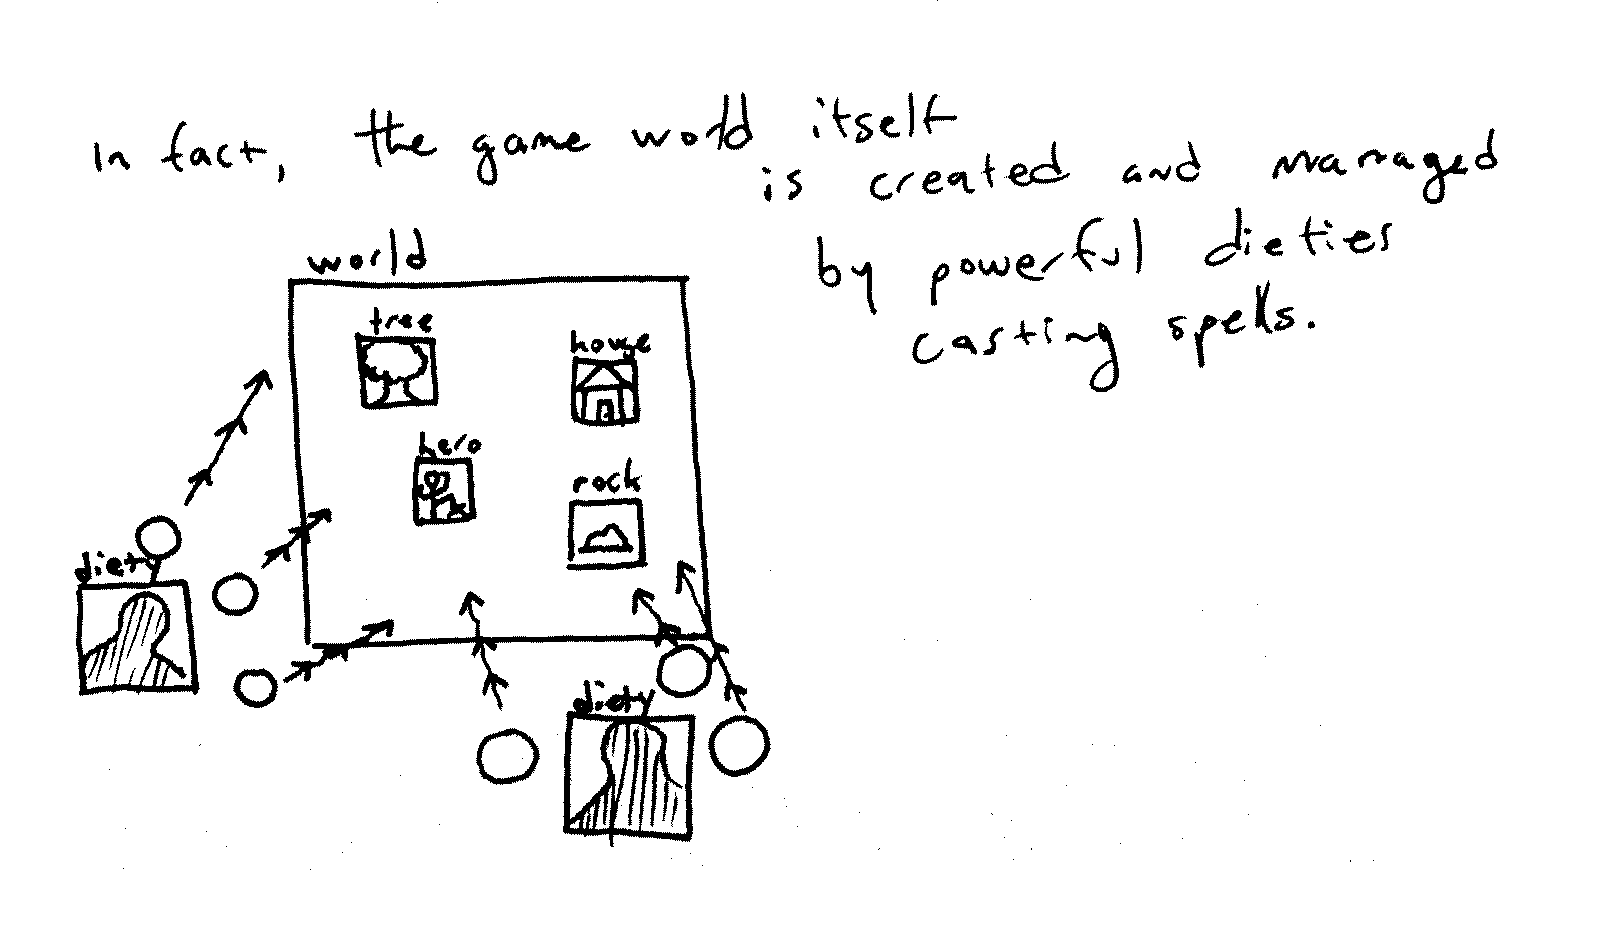 In fact, the game world itself
is created and managed
by powerful dieties
casting spells.
world
tree
house
hero
rock
diety
diety